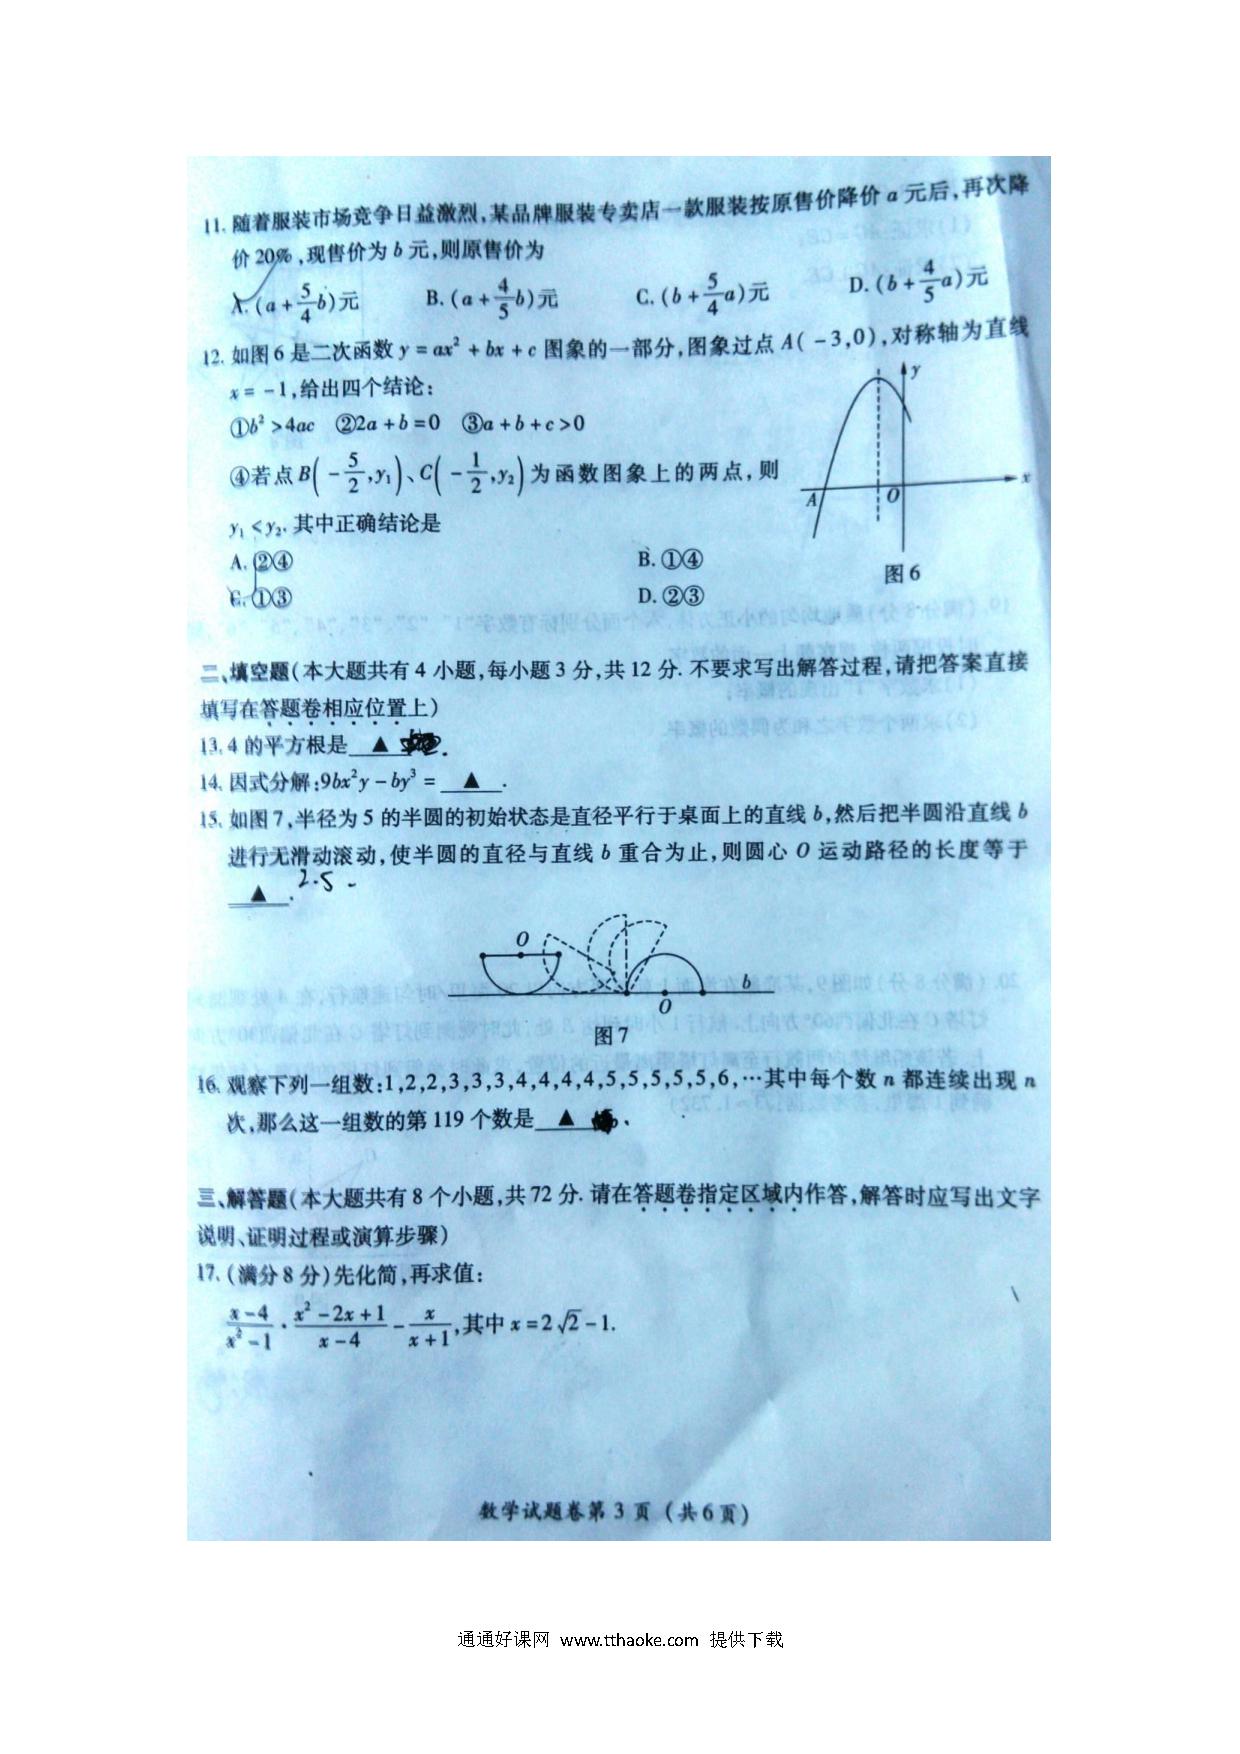 11. 随着服装市场竞争日益激烈,某品牌服装专卖店一款服装按原售价降价 a 元后,再次降
价 20%,现售价为 b 元,则原售价为
A. (a + 5/4 b)元 B. (a + 4/5 b)元 C. (b + 5/4 a)元 D. (b + 4/5 a)元
12. 如图 6 是二次函数 y = ax² + bx + c 图象的一部分,图象过点 A( -3,0),对称轴为直线
x = -1,给出四个结论:
①b² >4ac ②2a + b = 0 ③a + b + c > 0
④若点 B( - 5/2 ,y₁)、C( - 1/2 ,y₂)为函数图象上的两点,则
y₁ < y₂. 其中正确结论是
A. ②④ B. ①④
C. ①③ D. ②③
y
x
A
O
图 6
二、填空题(本大题共有 4 小题,每小题 3 分,共 12 分. 不要求写出解答过程,请把答案直接
填写在答题卷相应位置上)
13. 4 的平方根是 ▲ .
14. 因式分解:9bx²y - by³ = ▲ .
15. 如图 7,半径为 5 的半圆的初始状态是直径平行于桌面上的直线 b,然后把半圆沿直线 b
进行无滑动滚动,使半圆的直径与直线 b 重合为止,则圆心 O 运动路径的长度等于
▲ . 2.5
O
b
O
图 7
16. 观察下列一组数:1,2,2,3,3,3,4,4,4,4,5,5,5,5,5,6,…其中每个数 n 都连续出现 n
次,那么这一组数的第 119 个数是 ▲ .
三、解答题(本大题共有 8 个小题,共 72 分. 请在答题卷指定区域内作答,解答时应写出文字
说明、证明过程或演算步骤)
17. (满分 8 分)先化简,再求值:
(x - 4)/(x² - 1) · (x² - 2x + 1)/(x - 4) - x/(x + 1),其中 x = 2√2 - 1.
数学试题卷第 3 页 (共 6 页)
通通好课网 www.tthaoke.com 提供下载